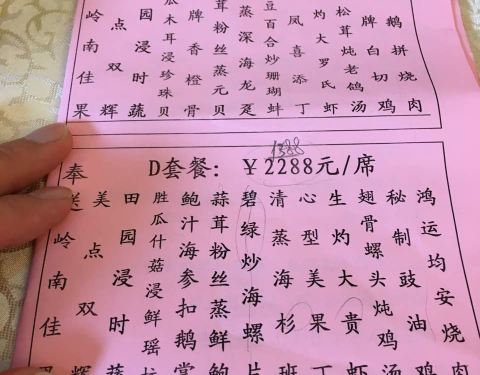 鹅拼烧肉
牌白切鸡
松茸炖老鸽汤
灼大罗氏虾
凤喜添丁
豆百合炒珊瑚蚌
蒸深海龙趸
茸粉丝蒸元贝
牌香橙骨
瓜木耳浸珍珠贝
园浸时蔬
点双辉
岭南佳果
1388
D套餐：￥2288元/席
鸿运均安烧肉
秘制豉油鸡
翅骨螺头炖鸡汤
生灼大贵虾
心型美果丁
清蒸海杉班
碧绿炒海螺片
蒜茸粉丝蒸鲜鲍
鲍汁海参扣鹅掌
胜瓜什菇浸鲜瑶柱
田园浸时蔬
美点双辉
奉送岭南佳果